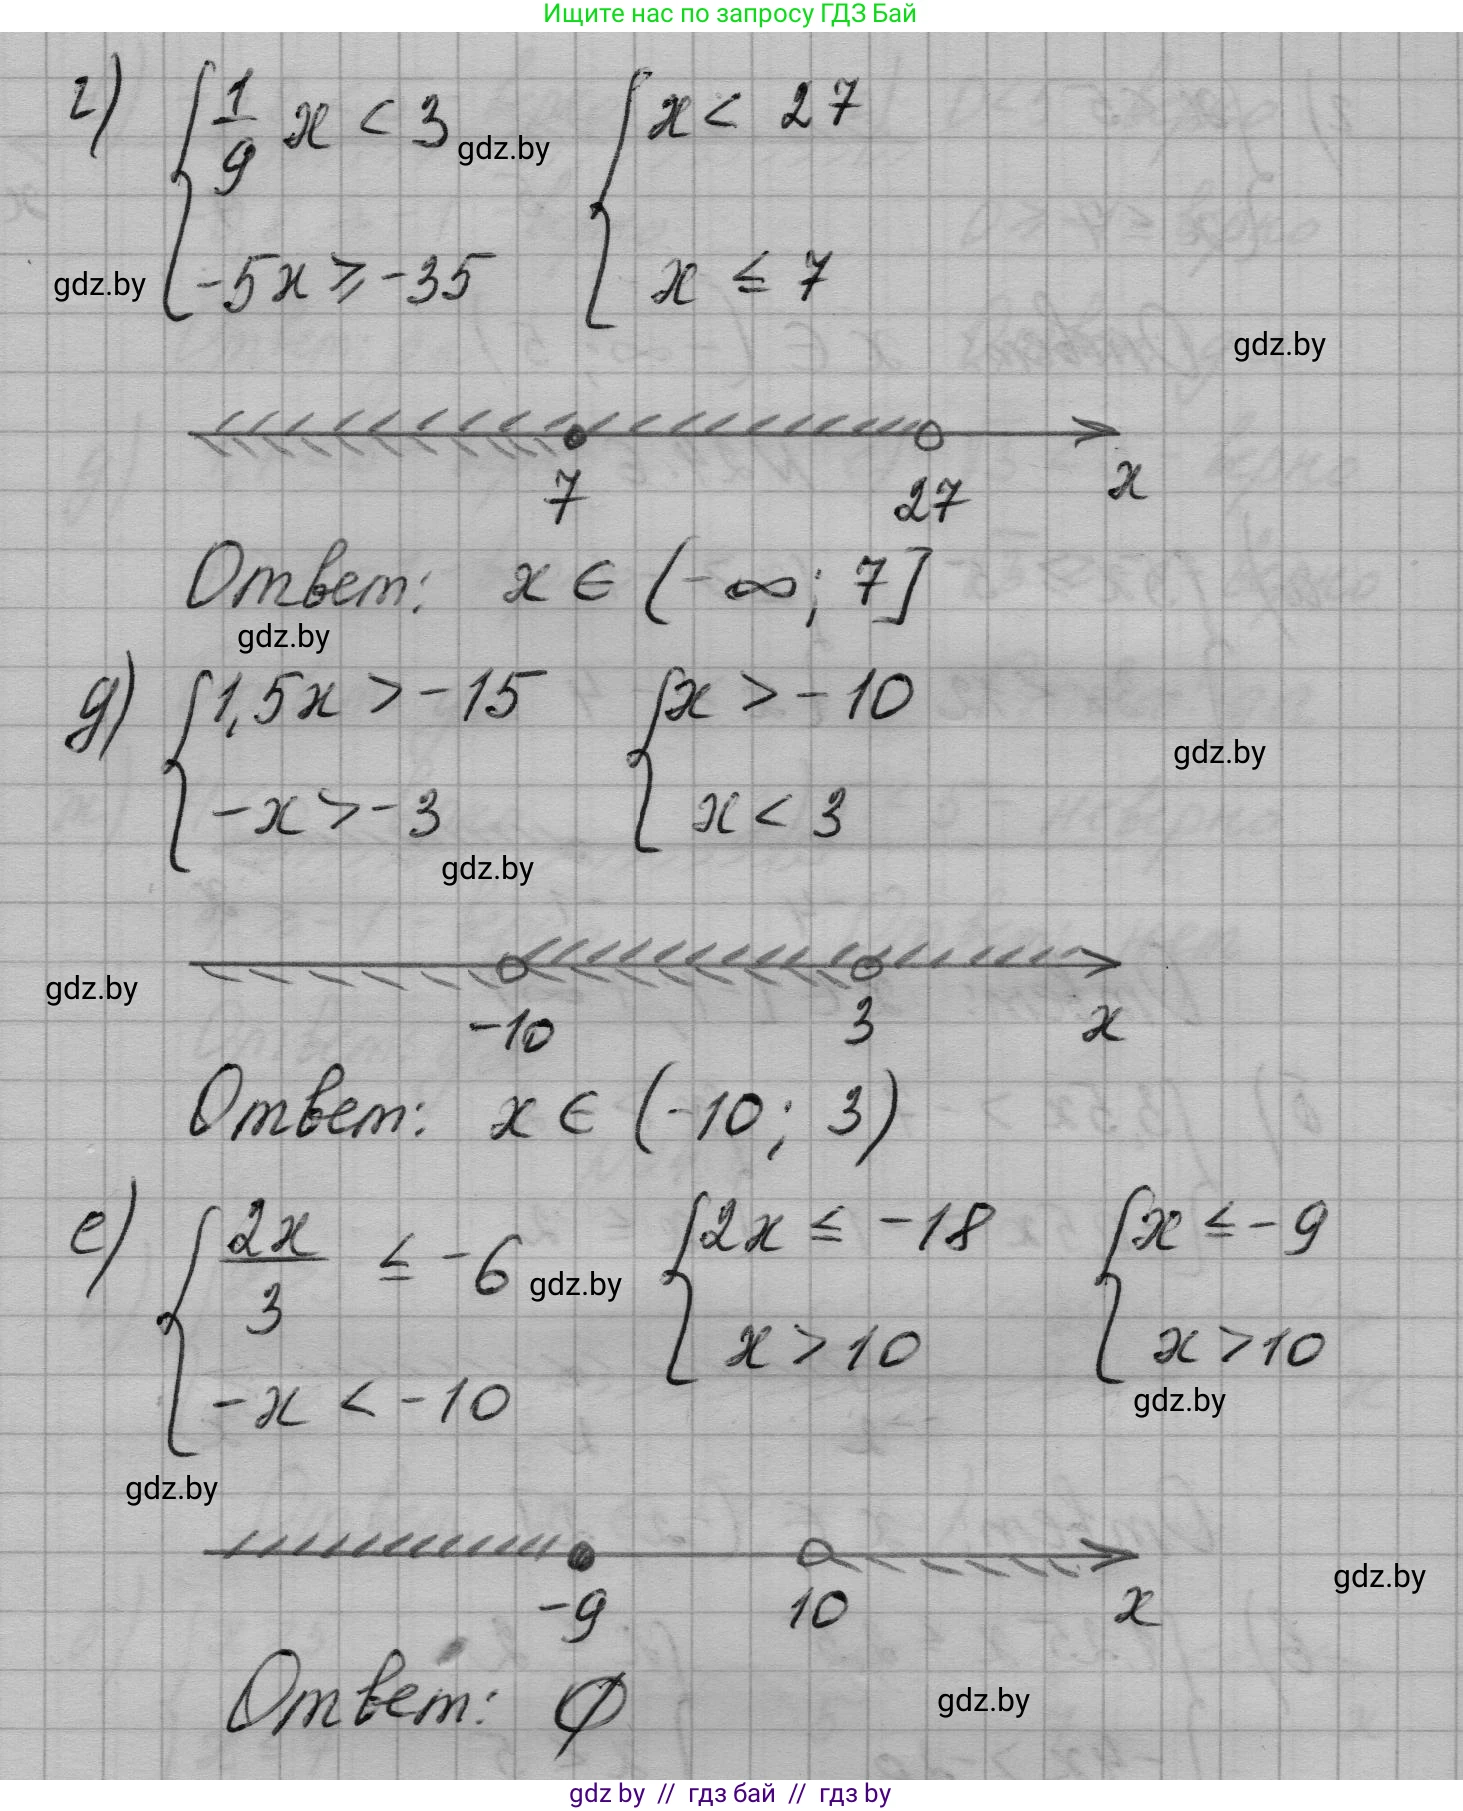 Ищите нас по запросу ГДЗ Бай
г) { 1/9 x < 3 { x < 27
gdz.by
-5x ⩾ -35 x ≤ 7
gdz.by
gdz.by
7 27 x
Ответ: x ∈ (-∞; 7]
gdz.by
д) { 1,5x > -15 { x > -10
gdz.by
-x > -3 x < 3
gdz.by
gdz.by
-10 3 x
Ответ: x ∈ (-10; 3)
е) { 2x/3 ≤ -6 { 2x ≤ -18 { x ≤ -9
gdz.by
-x < -10 x > 10 x > 10
gdz.by
gdz.by
-9 10 x
gdz.by
Ответ: ∅
gdz.by
gdz by // гдз бай // гдз by